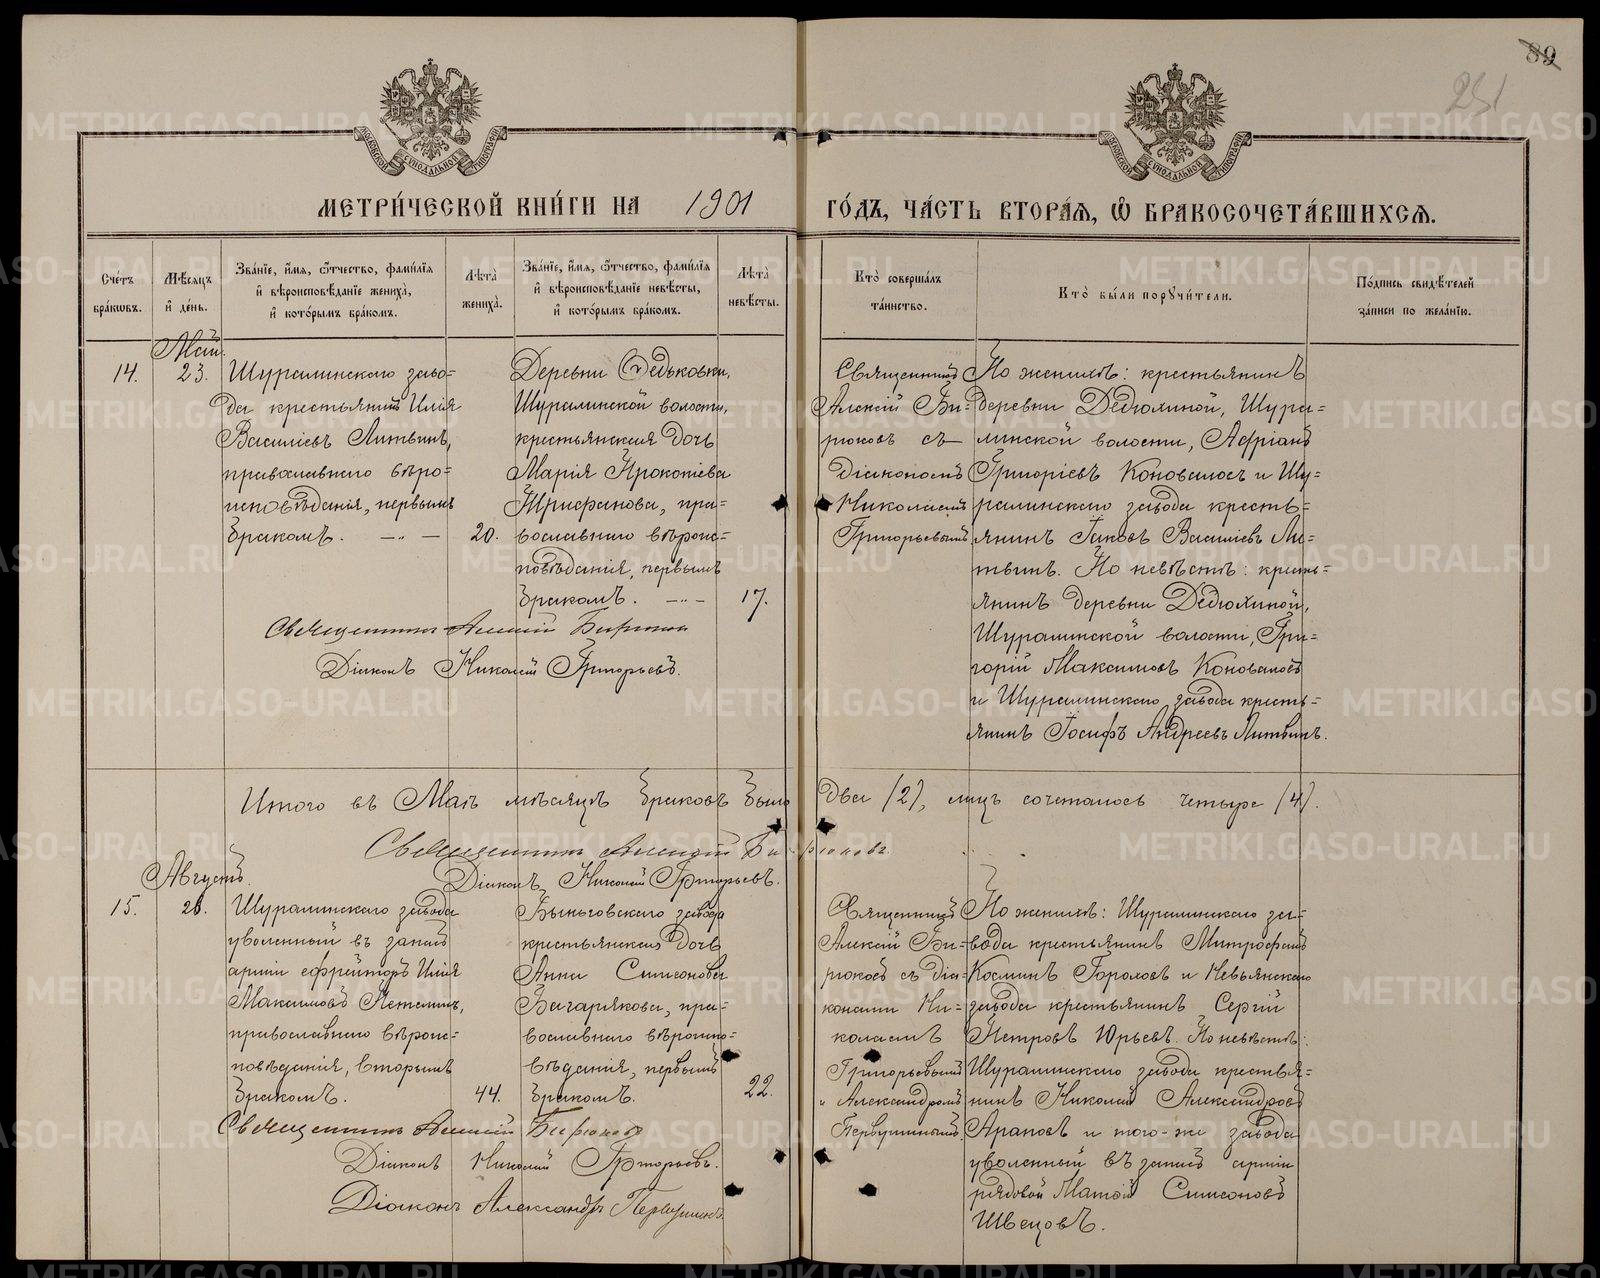 89
251
МЕТРИ́ЧЕСКОЙ КНИ́ГИ НА 1901
ГО́ДЪ, ЧА́СТЬ ВТОРА́Я, Ѽ БРАКОСОЧЕТА́ВШИХСЯ.
Сче́тъ бра́ковъ.
Мѣ́сяцъ и де́нь.
Зва́нїе, и́мя, ѻ́тчество, фами́лїя и вѣроисповѣ́данїе жениха̀, и кото́рымъ бра́комъ.
Лѣ́та жениха̀.
Зва́нїе, и́мя, ѻ́тчество, фами́лїя и вѣроисповѣ́данїе невѣ́сты, и кото́рымъ бра́комъ.
Лѣ́та невѣ́сты.
Кто̀ соверша́лъ та́инство.
Кто̀ бы́ли поручи́тели.
По́дпись свидѣ́телей за́писи по жела́нїю.
Май.
14.
23.
Шуралинскаго заво-
да крестьянинъ Илія
Василіевъ Литвинъ,
православнаго вѣро-
исповѣданія, первымъ
бракомъ. — „ —
20.
Деревни Федьковки,
Шуралинской волости,
крестьянская дочь
Марія Прокопіева
Трифанова, пра-
вославнаго вѣроис-
повѣданія, первымъ
бракомъ. — „ —
17.
Священникъ
Алексій Би-
рюковъ съ
Діакономъ
Николаемъ
Григорьевымъ
По женихѣ: крестьянинъ
деревни Дедюхиной, Шура-
линской волости, Адріанъ
Григоріевъ Коноваловъ и Шу-
ралинскаго завода кресть-
янинъ Іаковъ Василіевъ Ли-
твинъ. По невѣстѣ: кресть-
янинъ деревни Дедюхиной,
Шуралинской волости, Гри-
горій Максимовъ Коноваловъ
и Шуралинскаго завода кресть-
янинъ Іосифъ Андреевъ Литвинъ.
Священникъ Алексій Бирюковъ
Діаконъ Николай Григорьевъ.
Итого въ Маѣ мѣсяцѣ браковъ было Два (2), лицъ сочеталось четыре (4).
Священникъ Алексій Бирюковъ
Діаконъ Николай Григорьевъ.
Августъ.
15.
26.
Шуралинскаго завода
уволенный въ запасъ
арміи ефрейторъ Илія
Максимовъ Петелинъ,
православнаго вѣроис-
повѣданія, вторымъ
бракомъ.
44.
Быньговскаго завода
крестьянская дочь
Анна Симеонова
Вагарякова, пра-
вославнаго вѣроиспо-
вѣданія, первымъ
бракомъ.
22.
Священникъ
Алексій Би-
рюковъ съ діа-
конами Ни-
колаемъ
Григорьевымъ
и Александромъ
Первушинымъ.
По женихѣ: Шуралинскаго за-
вода крестьянинъ Митрофанъ
Косминъ Гороховъ и Невьянскаго
завода крестьянинъ Сергій
Петровъ Юрьевъ. По невѣстѣ:
Шуралинскаго завода крестья-
нинъ Николай Александровъ
Араповъ и того-же завода
уволенный въ запасъ арміи
рядовой Матѳій Симеоновъ
Швецовъ.
Священникъ Алексій Бирюковъ
Діаконъ Николай Григорьевъ.
Діаконъ Александръ Первушинъ.